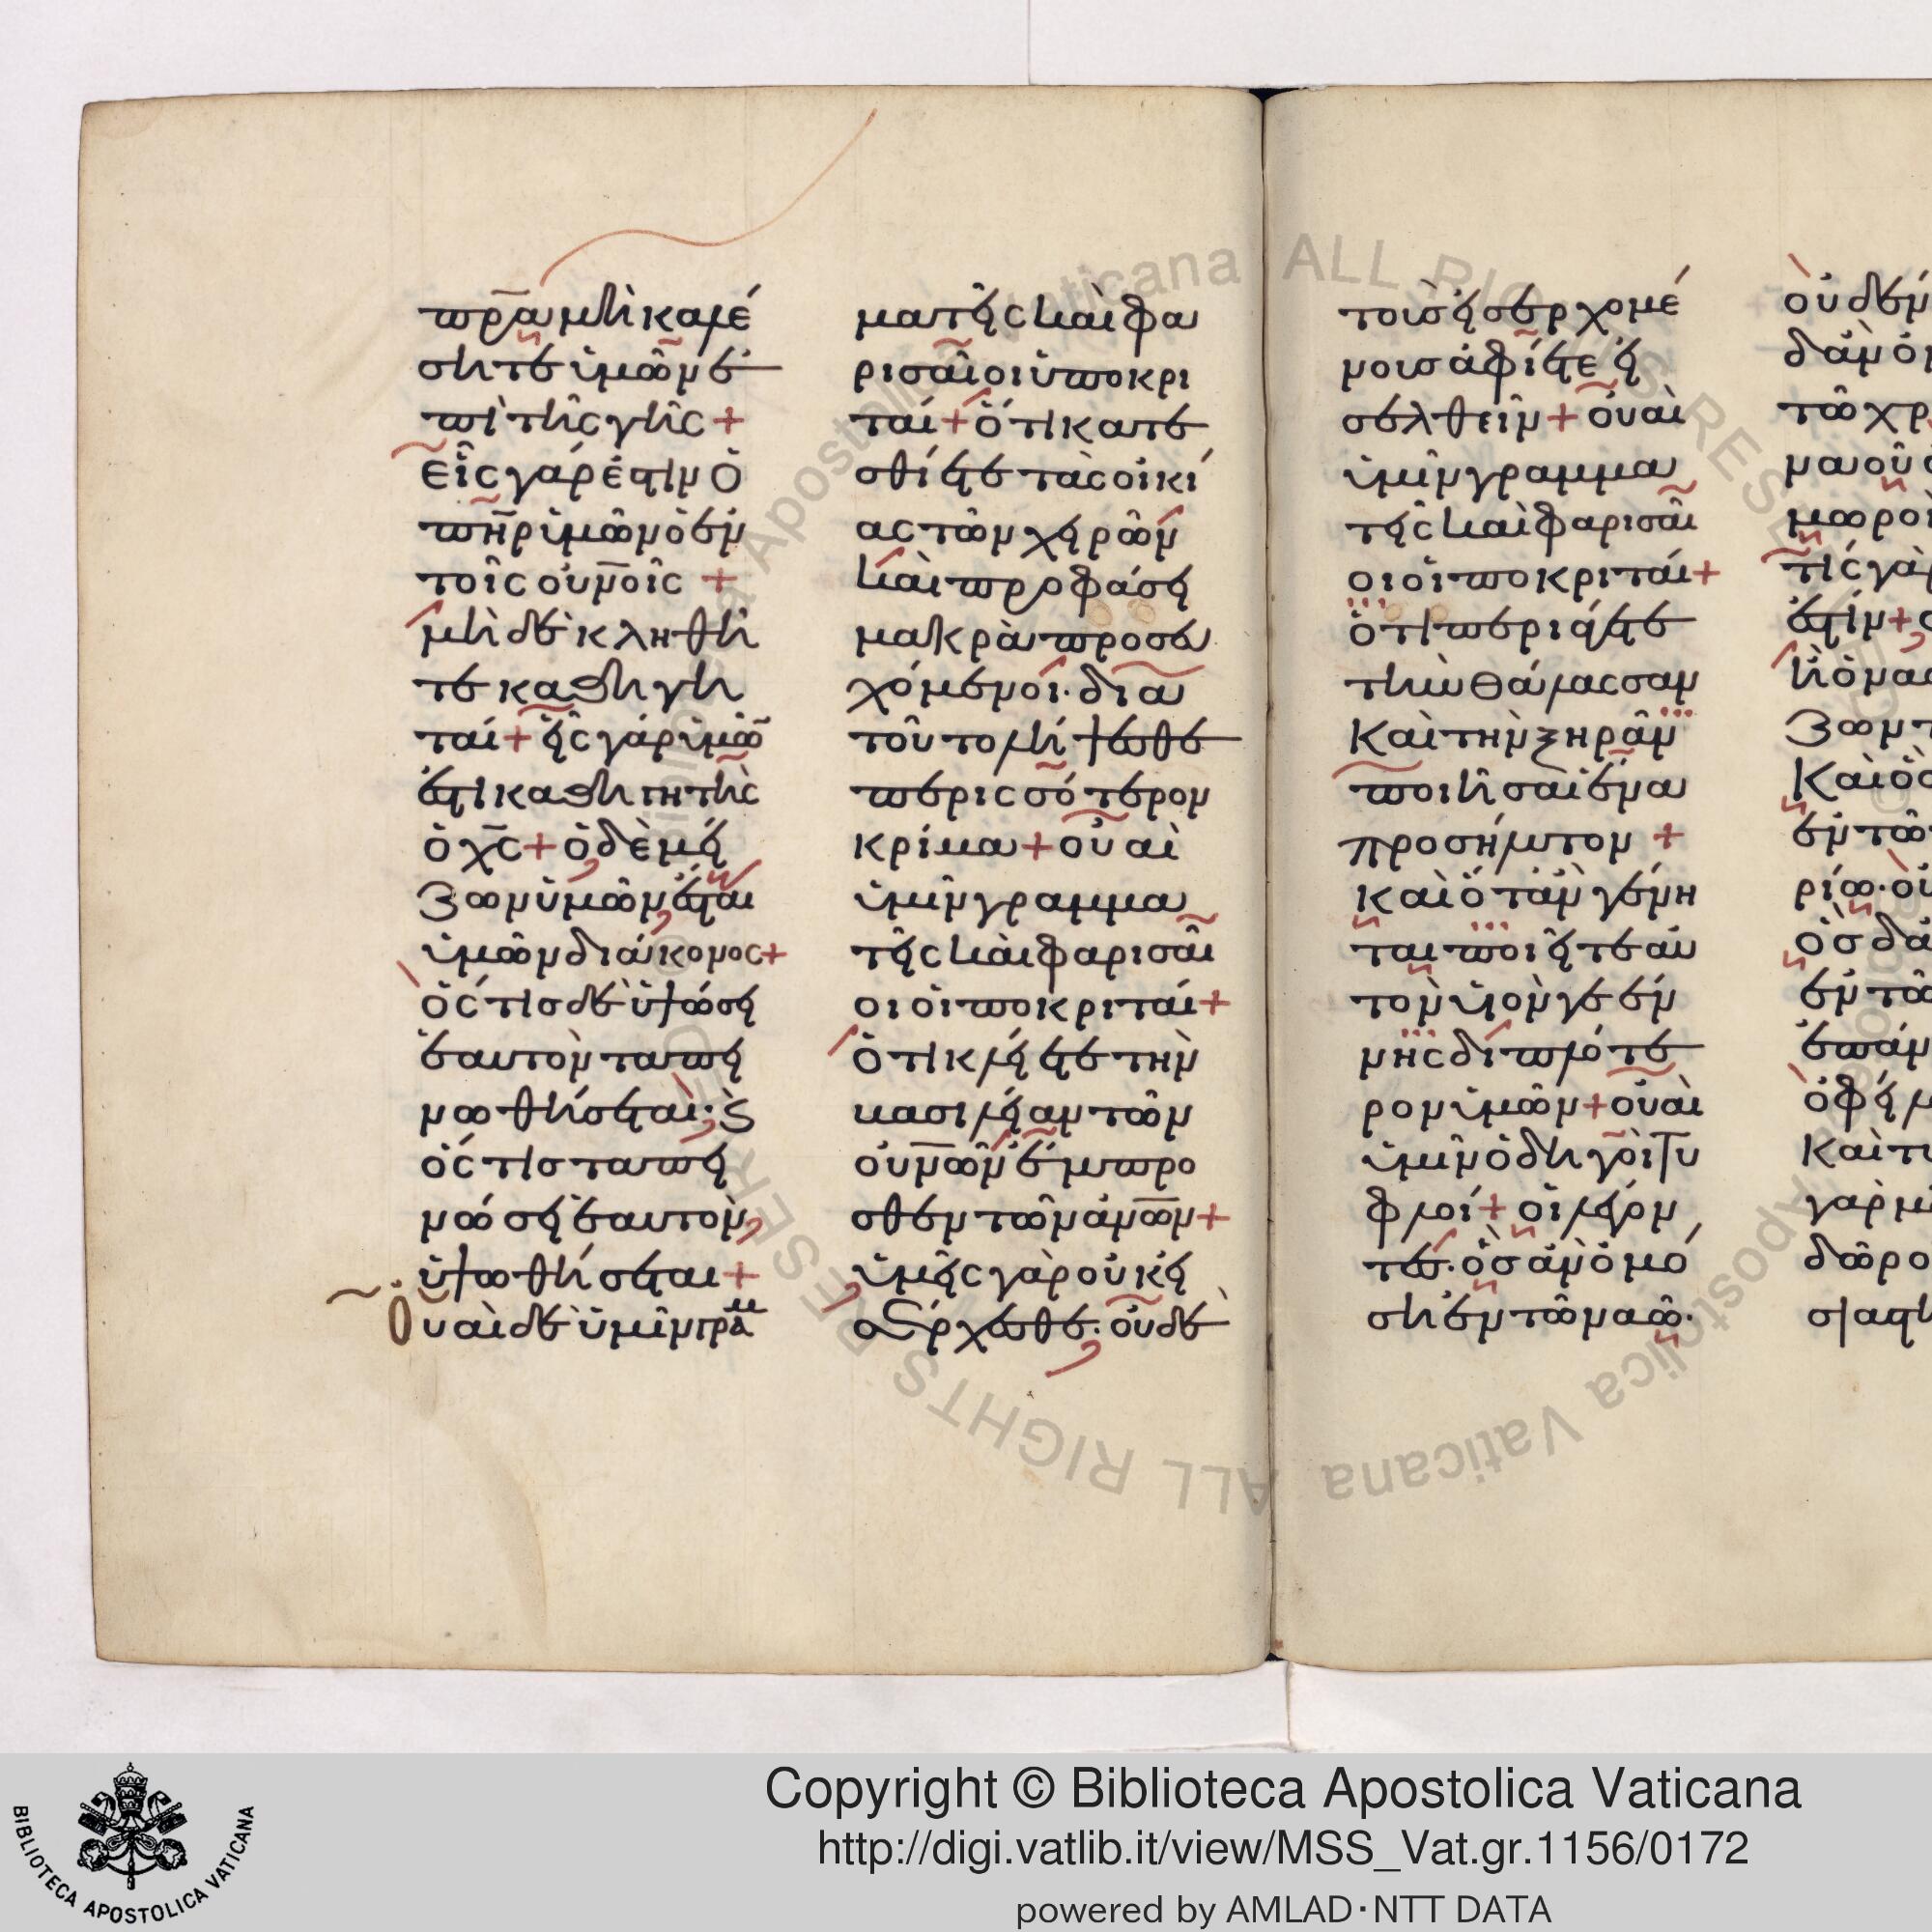 πρ̅α μὴ καλέ
σητε ὑμῶν ἐ
πὶ τῆς γῆς +
εἷς γάρ ἐστιν ὁ
πη̅ρ ὑμῶν ὁ ἐν
τοῖς οὐν̅οῖς +
μὴ δὲ κληθῆ
τε καθηγη
ταί + εἷς γάρ ὑμῶ̅
ἐστι καθηγητὴς
ὁ χ̅ς + ὁ δὲ μεί
ζων ὑμῶν ἔσται
ὑμῶν διάκονος +
ὅς τις δὲ ὑψώσει
ἑαυτὸν ταπει
νωθήσεται· ϗ
ὅς τις ταπει
νώσει ἑαυτὸν,
ὑψωθήσεται +
Οὐαὶ δὲ ὑμῖν γραμ
ματεῖς καὶ φα
ρισαῖοι ὑποκρι
ταί + ὅτι κατε
σθίετε τὰς οἰκί
ας τῶν χειρῶν
καὶ προφάσει
μακρὰ προσευ
χόμενοι· δια
τοῦτο λήψεσθε
περισσότερον
κρίμα + οὐαὶ
ὑμῖν γραμμα
τεῖς καὶ φαρισαῖ
οι οἱποκριταί +
ὅτι κλείετε τὴν
βασιλείαν τῶν
οὐν̅ῶν ἔμπρο
σθεν τῶν ἀν̅ων +
ὑμεῖς γὰρ οὐκ εἰ
σέρχεσθε· οὐδὲ
τοὺς εἰσερχομέ
νους ἀφίετε εἰ
σελθεῖν + οὐαὶ
ὑμῖν γραμμα
τεῖς καὶ φαρισαῖ
οι οἱποκριταί +
ὅτι περιάγετε
τὴν θάλασσαν
καὶ τὴν ξηρὰν
ποιῆσαι ἕνα
προσήλυτον +
καὶ ὅταν γένη
ται ποιεῖτε αὐ
τὸν υἱὸν γεέν
νης διπλότε
ρον ὑμῶν + οὐαὶ
ὑμῖν ὁδηγοὶ τυ
φλοί + οἱ λέγον
τες· ὃς ἂν ὀμό
σῃ ἐν τῶ ναῶ·
οὐδέν
τῶ χρ
μωροὶ
τίς γὰρ
ἐστίν +
ζων τ
καὶ ὃς
ἐν τῶ
ρίω· οὐ
ὃς δὰ
ἐν τῶ
ἐπάν
ὀφείλ
καὶ τυ
γὰρ μ
δῶρο
Copyright © Biblioteca Apostolica Vaticana
http://digi.vatlib.it/view/MSS_Vat.gr.1156/0172
powered by AMLAD·NTT DATA
BIBLIOTECA APOSTOLICA VATICANA